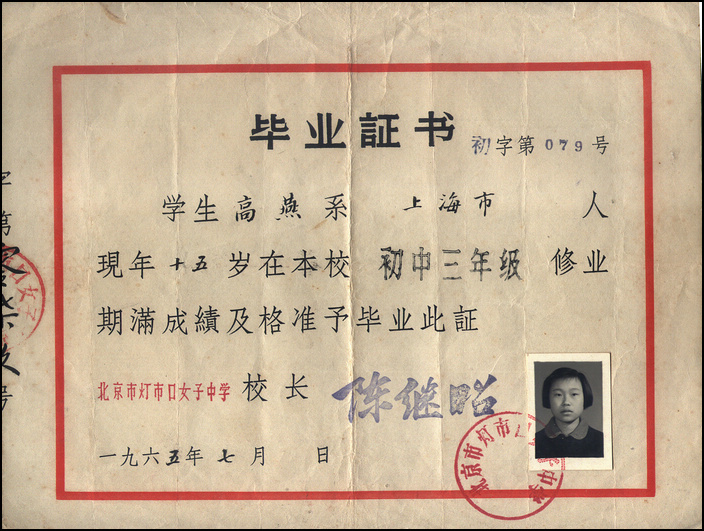 毕业証书
初字第079号
学生高燕系 上海市 人
現年十五岁在本校初中三年级修业
期滿成績及格准予毕业此証
北京市灯市口女子中学 校长 陈继昭
一九六五年七月 日
北京市灯市口
字第
号